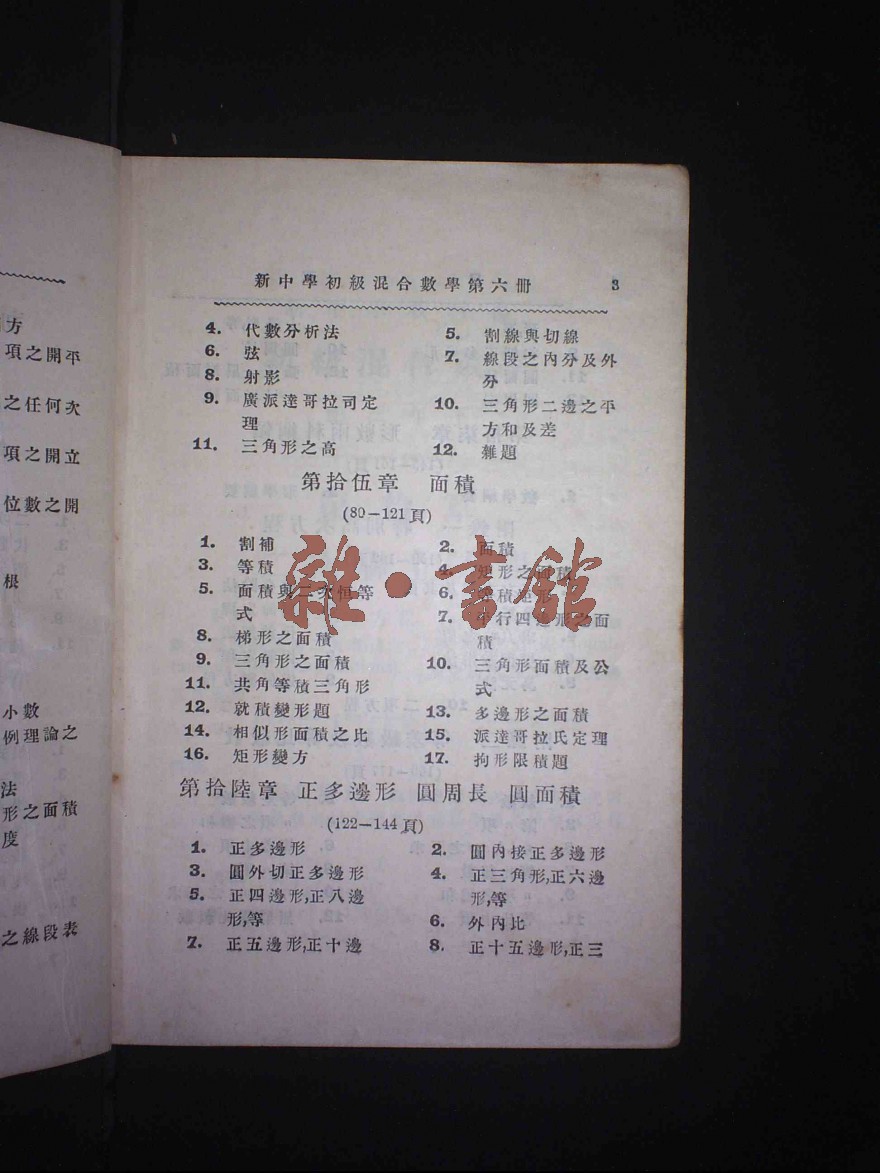 新中學初級混合數學第六册 3
4. 代數分析法 5. 割線與切線
6. 弦 7. 線段之內分及外
分
8. 射影
9. 廣派達哥拉司定 10. 三角形二邊之平
理 方和及差
11. 三角形之高 12. 雜題
第拾伍章 面積
(80-121頁)
1. 割補 2. 面積
3. 等積 4. 矩形之面積
5. 面積與二次恒等 6. 等積矩形
式 7. 平行四邊形之面
積
8. 梯形之面積
9. 三角形之面積 10. 三角形面積及公
式
11. 共角等積三角形
12. 就積變形題 13. 多邊形之面積
14. 相似形面積之比 15. 派達哥拉氏定理
16. 矩形變方 17. 拘形限積題
第拾陸章 正多邊形 圓周長 圓面積
(122-144頁)
1. 正多邊形 2. 圓內接正多邊形
3. 圓外切正多邊形 4. 正三角形,正六邊
形,等
5. 正四邊形,正八邊
形,等 6. 外內比
7. 正五邊形,正十邊 8. 正十五邊形,正三
方
項之開平
之任何次
項之開立
位數之開
根
小數
例理論之
法
形之面積
度
之線段表
雜·書館